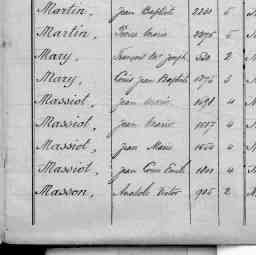 Martin, Jean Baptist 2230 5
Martin, Pierre Marie 5
Mary, François Me Joseph 530 2
Mary, Louis Jean Baptiste 3
Massiot, Jean Marie 1698 4
Massiot, Jean Marie 4
Massiot, Jean Marie 1660 4
Massiot, Jean Louis Emile 4
Masson, Anatole Victor 905 2